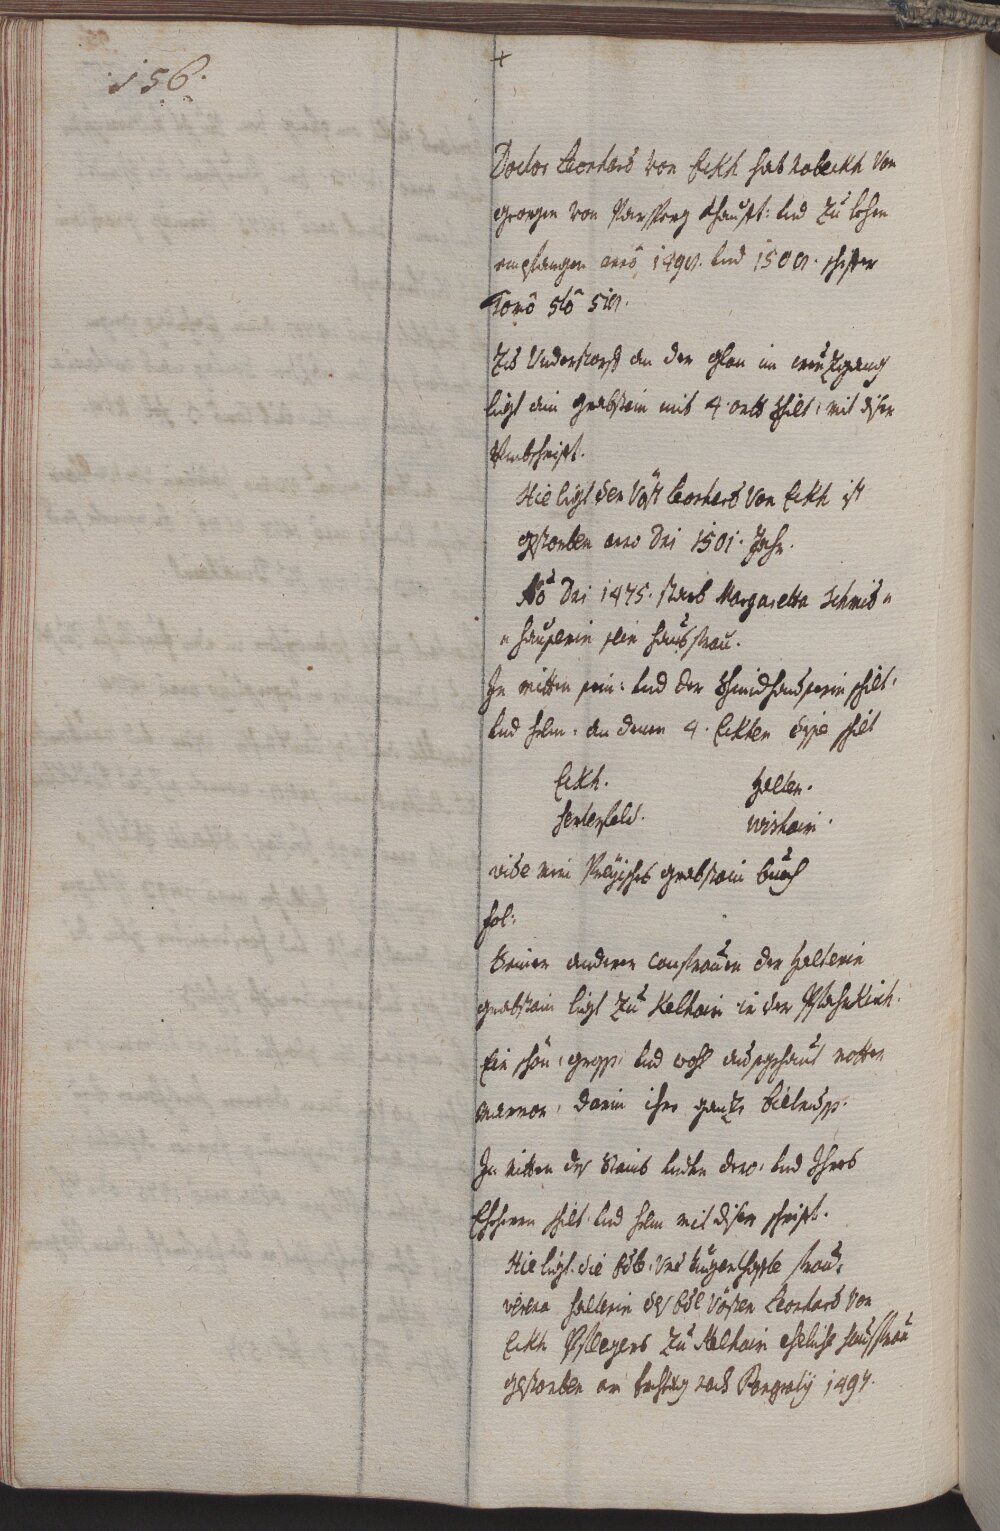 156.
+
Doctor Leonhard von Eckh hat Kobeckh von
georgen von Parsperg Khaufft: und zu lehen
empfangen anno 1490. und 1500.
Tomo
Zu Understorff an der glon im creutzgang
ligt ain grabstain mit 4 ortt schilt, mit diser
Umbschrifft.
Hie ligt der Vösst Leonhard Von Eckh ist
gestorben anno Dni 1501. Jahr.
Ao Dni 1475. starb Margaretta Schmid=
=hauserin sein hausfrau.
In mitten sein: und der Schmidhauserin schilt,
und helm. an denen 4. Eckten dise schilt
Eckh. Halter.
vide mein Preysches grabstain buech
fol:
Seiner anderen consrauen der Halterin
grabstain ligt zu Kelhaim in der Pfahrkirch.
Ein schön, gross, und wohl aussgehaut rotter
marmor, darin ihre gantze bieltnuss.
In mitten des stains und Ihres
Eheherrn schilt und helm mit diser schrifft.
Hie ligt die Edle, und tugenthaffte frau,
verena Halterin des Edl Vösten Leonhard Von
Eckh Pflegers zu Kelhaim eheliche hausfrau
gestorben am nach Pangratij 1497.